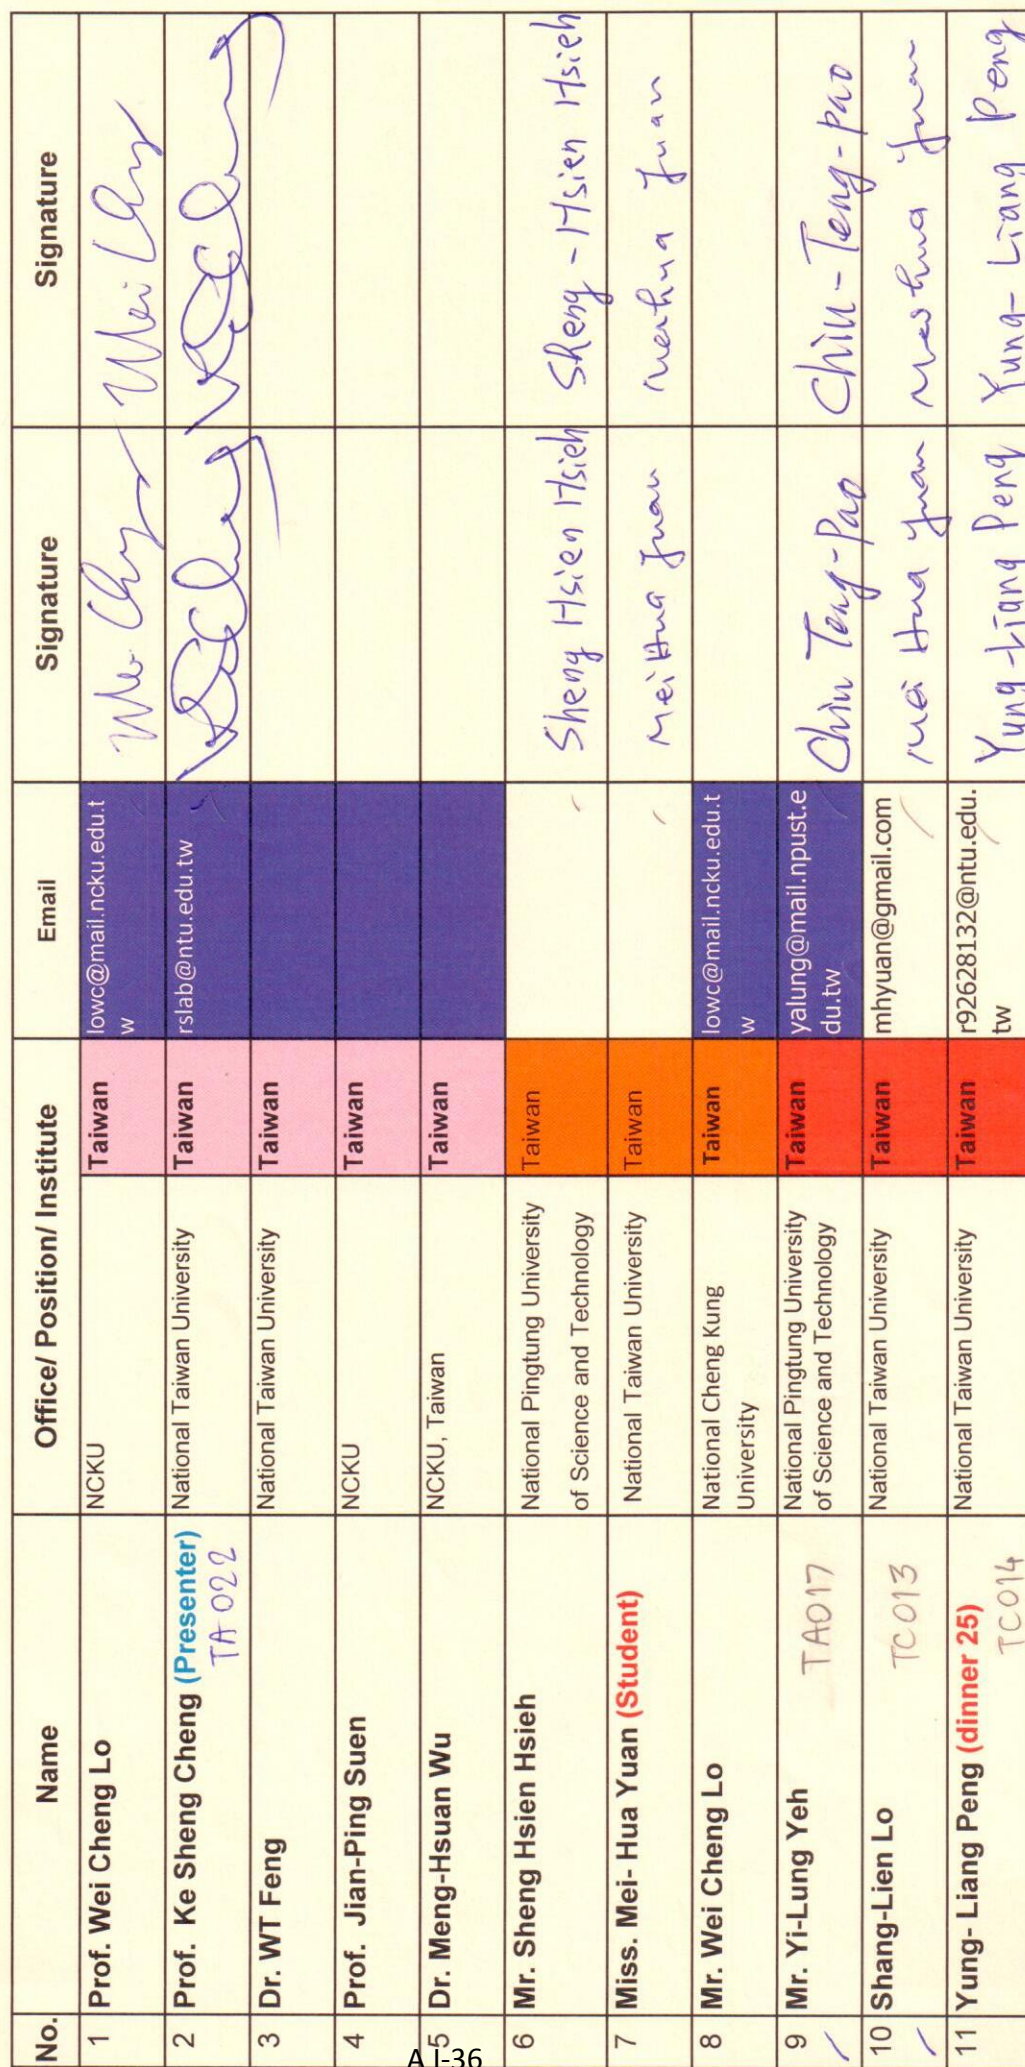 No. Name Office/ Position/ Institute Email Signature Signature
1 Prof. Wei Cheng Lo NCKU Taiwan lowc@mail.ncku.edu.t
w
2 Prof. Ke Sheng Cheng (Presenter) National Taiwan University Taiwan rslab@ntu.edu.tw
TA 022
3 Dr. WT Feng National Taiwan University Taiwan
4 Prof. Jian-Ping Suen NCKU Taiwan
5 Dr. Meng-Hsuan Wu NCKU, Taiwan Taiwan
6 Mr. Sheng Hsien Hsieh National Pingtung University Taiwan Sheng Hsien Hsieh Sheng-Hsien Hsieh
of Science and Technology
7 Miss. Mei- Hua Yuan (Student) National Taiwan University Taiwan Mei Hua Yuan Meihua Yuan
8 Mr. Wei Cheng Lo National Cheng Kung Taiwan lowc@mail.ncku.edu.t
University w
9 Mr. Yi-Lung Yeh TA017 National Pingtung University Taiwan yalung@mail.npust.e Chin Teng-Pao Chin-Teng-pao
of Science and Technology du.tw
10 Shang-Lien Lo TC013 National Taiwan University Taiwan mhyuan@gmail.com Mei Hua Yuan Meihua Yuan
11 Yung- Liang Peng (dinner 25) National Taiwan University Taiwan r92628132@ntu.edu. Yung-Liang Peng Yung-Liang Peng
TC014 tw
A J-36